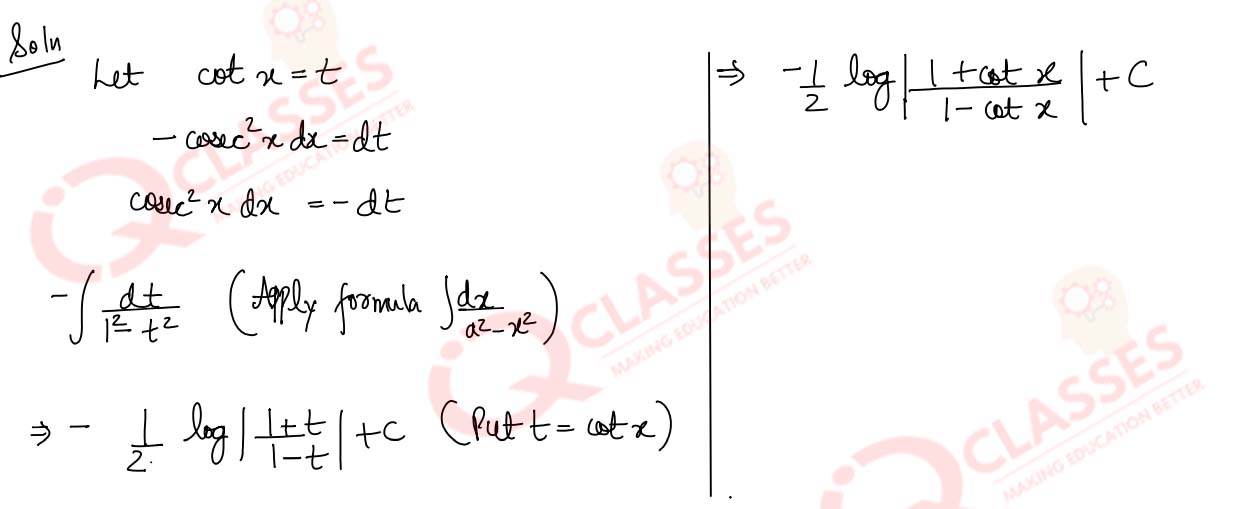 Soln
Let cot x = t
- cosec² x dx = dt
cosec² x dx = - dt
-∫ dt / 1² - t² (Apply formula ∫ dx / a² - x²)
⇒ - 1/2 log | 1+t / 1-t | + C (Put t = cot x)
⇒ - 1/2 log | 1 + cot x / 1 - cot x | + C
CLASSES
MAKING EDUCATION BETTER
CLASSES
MAKING EDUCATION BETTER
CLASSES
MAKING EDUCATION BETTER